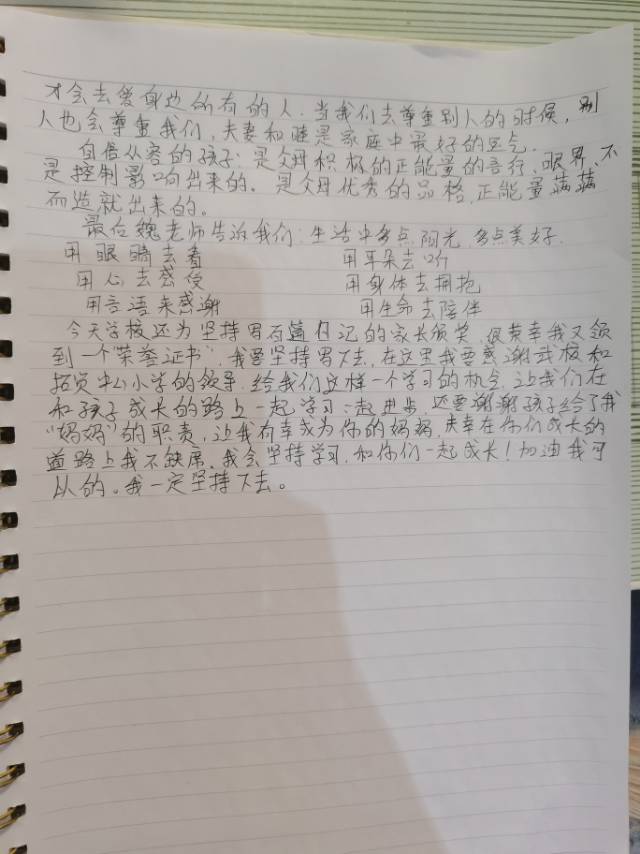 才会去爱身边所有的人。当我们去尊重别人的时候，别
人也会尊重我们，夫妻和睦是家庭中最好的运气。
自信从容的孩子：是父母积极的正能量的言行、眼界、不
是控制影响出来的。是父母优秀的品格，正能量满满
而造就出来的。
最后魏老师告诉我们：生活中多点阳光，多点美好。
用眼睛去看 用耳朵去听
用心去感受 用身体去拥抱
用言语来感谢 用生命去陪伴
今天学校还为坚持写日记的家长颁奖，很荣幸我又领
到一个"荣誉证书"，我要坚持写下去，在这里我要感谢武校和
中山小学的领导，给我们这样一个学习的机会，让我们在
和孩子成长的路上一起学习一起进步，还要谢谢孩子给了我
"妈妈"的职责，让我有幸成为你的妈妈，幸在你们成长的
道路上我不缺席，我会坚持学习，和你们一起成长！加油我可
以的。我一定坚持下去。